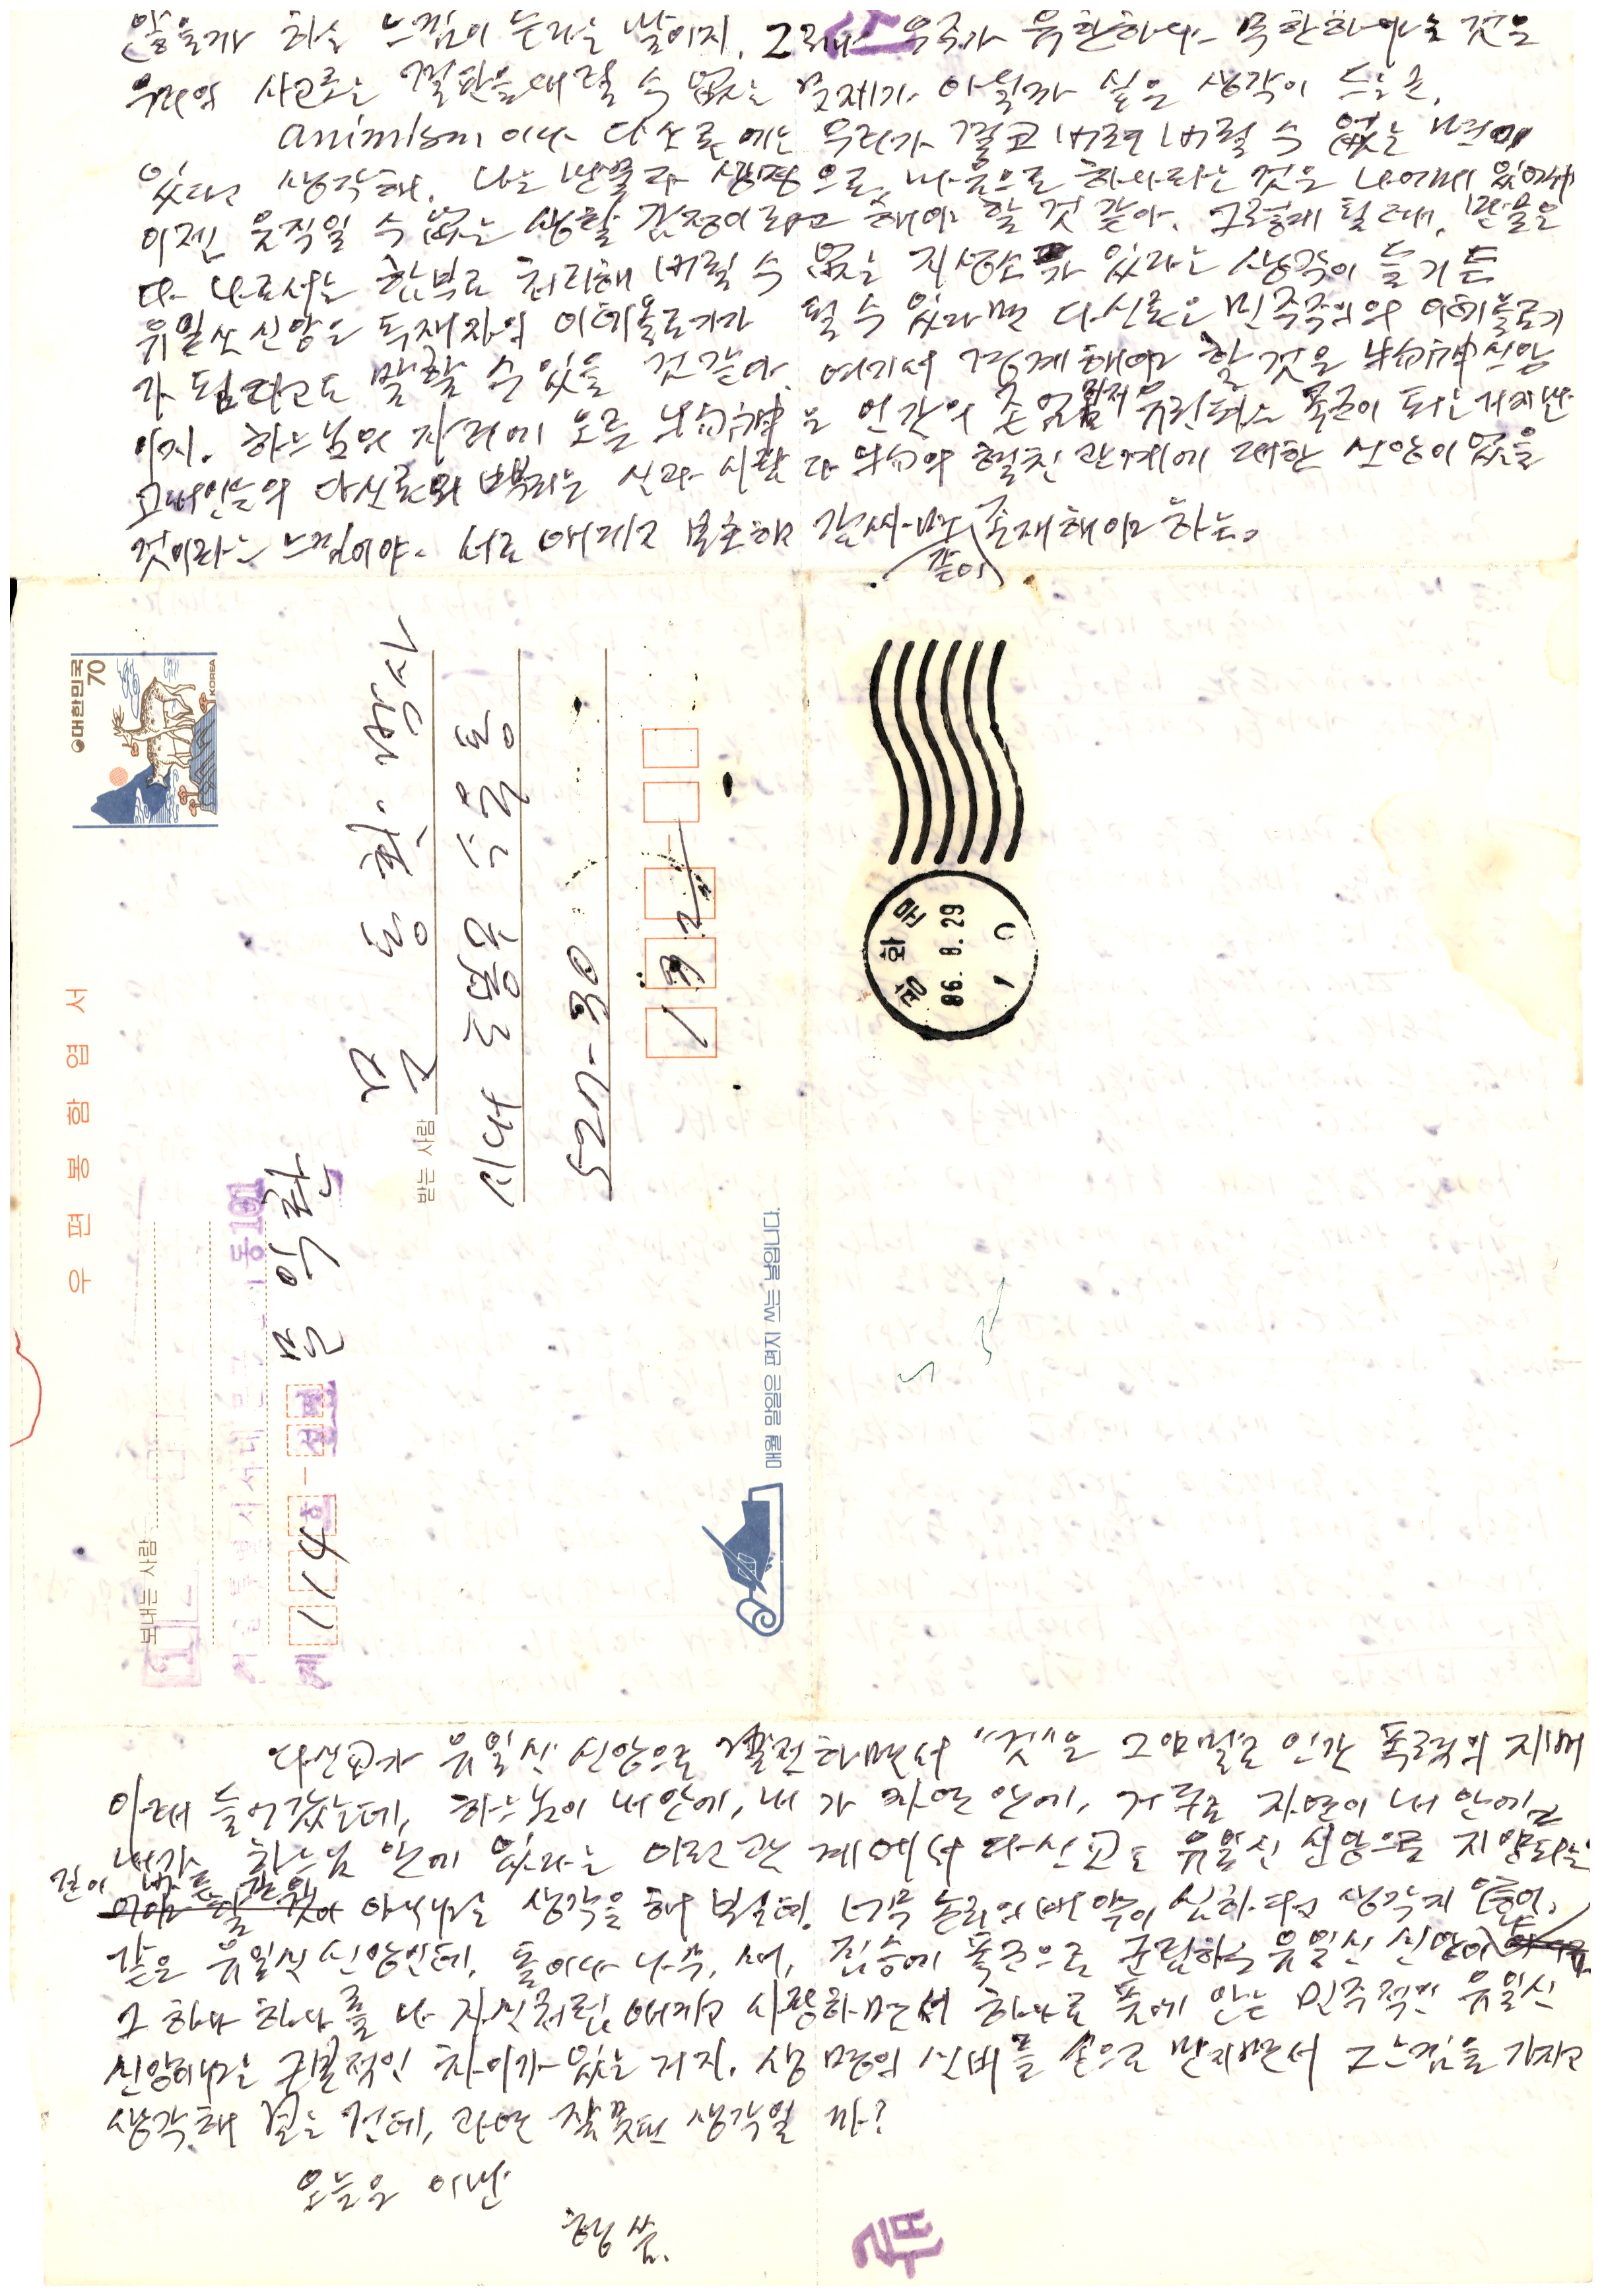 않을까 하는 느낌이 든다는 말이지. 그러나 우주가 유한하냐 무한하냐는 것은
우리의 사고로는 결판을 내릴 수 없는 문제가 아닐까 싶은 생각이 드는군.
animism이나 다신론에는 우리가 결코 버려 버릴 수 없는 면이
있다고 생각해. 나는 만물과 생명으로, 마음으로 하나라는 것은 나에게 있어서
이젠 움직일 수 없는 생활 감정이라고 해야 할 것 같아. 그렇게 될 때, 만물은
다 나로서는 함부로 처리해 버릴 수 없는 지성소가 있다는 생각이 들거든
유일신 신앙은 독재자의 이데올로기가 될 수 있다면 다신론은 민주주의의 이데올로기
가 된다고도 말할 수 있을 것 같아. 여기서 경계해야 할 것은 신앙
이지. 하느님의 자리에 오른 은 인간의 존엄 마저 유린하는 폭군이 되는 거지만
고대인들의 다신론의 뿌리는 신과 사람과 의 관계에 대한 신앙이 없을
것이라는 느낌이야. 서로 아끼고 해 같이 존재해야 하는.
대한민국
70
KOREA
우편봉함엽서
보내는 사람
문익환
114
받는 사람
문동환 박사
시내 도봉구 수유동
527-30
132
매월 말일은 편지 쓰는 날입니다.
광화문
86. 8. 29
10
다신교가 유일신 신앙으로 발전하면서 "것"은 그야말로 인간 폭력의 지배
아래 들어갔는데, 하느님이 내 안에, 내가 자연 안에, 거꾸로 자연이 내 안에
내가 하느님 안에 있다는 이런 관계에서 다신교도 유일신 신앙으로 지양되는
길이 아니냐는 생각을 해 보는데, 너무 논리의 비약이 심하다고 생각지
같은 유일신 신앙인데, 돌이나 나무, 새, 짐승에 폭군으로 군림하는 유일신 신앙이
그 하나 하나를 다 자식처럼 아끼고 사랑하면서 하나로 품에 안는 민주적인 유일신
신앙하고는 근본적인 차이가 있는 거지. 생명의 신비를 손으로 만지면서 그 느낌을 가지고
생각해 보는 건데, 과연 잘못된 생각일까?
오늘은 이만
형 씀.